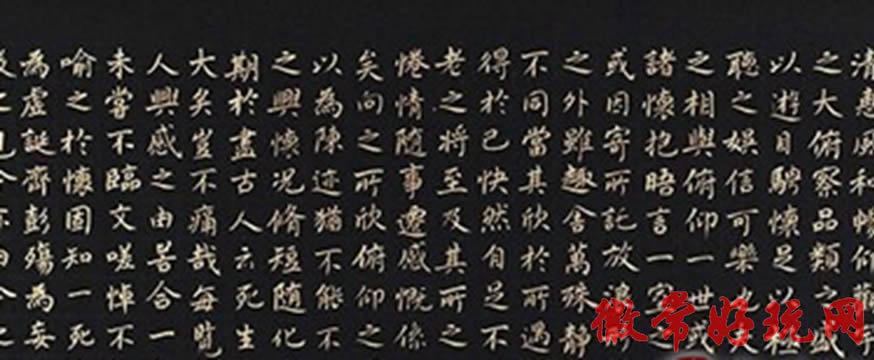 清惠風和暢仰
之大俯察品類之盛
以遊目騁懷足以
聽之娛信可樂也
之相與俯仰一世或
諸懷抱晤言一室之
或因寄所託放浪
之外雖趣舍萬殊靜
不同當其欣於所遇
得於己快然自足不
老之將至及其所之
惓情隨事遷感慨係
矣向之所欣俯仰之
以為陳迹猶不能不
之興懷况脩短隨化
期於盡古人云死生
大矣豈不痛哉每覽
人興感之由若合一
未嘗不臨文嗟悼不
喻之於懷固知一死
為虛誕齊彭殤為妄
之今之
徽常好玩网